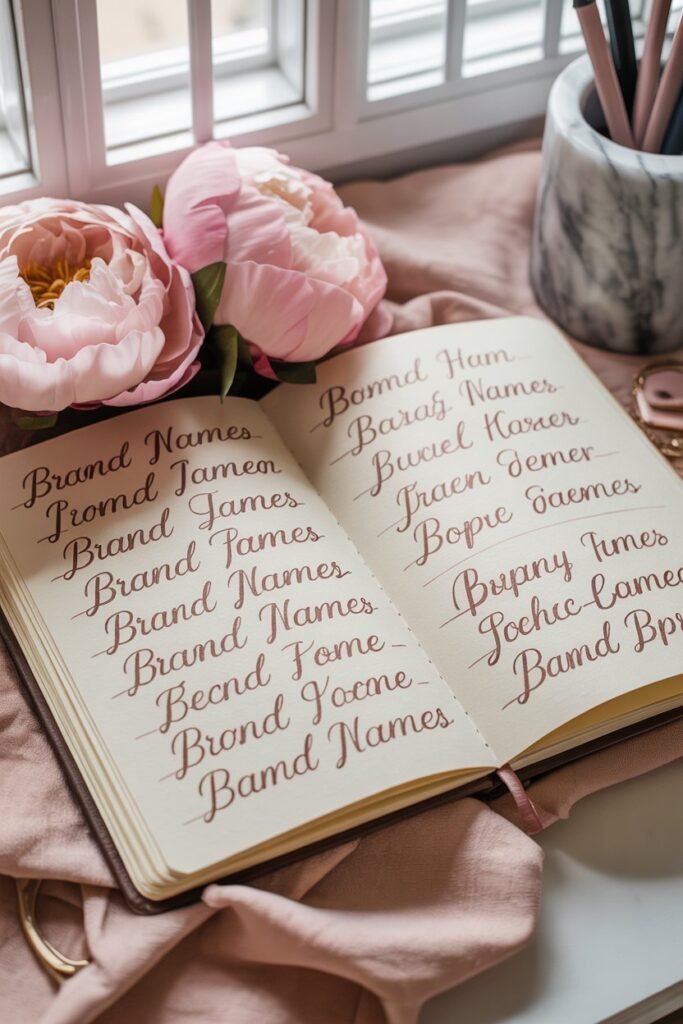 Brand Names
Jromd Jamen
Brand James
Brand Fames
Brand Names
Brand Names
Becnd Fome
Brond Yocne
Bamd Names
Bomnd Ham
Basag Names
Buuciel Haserer
Traen Demer
Bopre Saemes
Bupany Times
Bamd Bpr